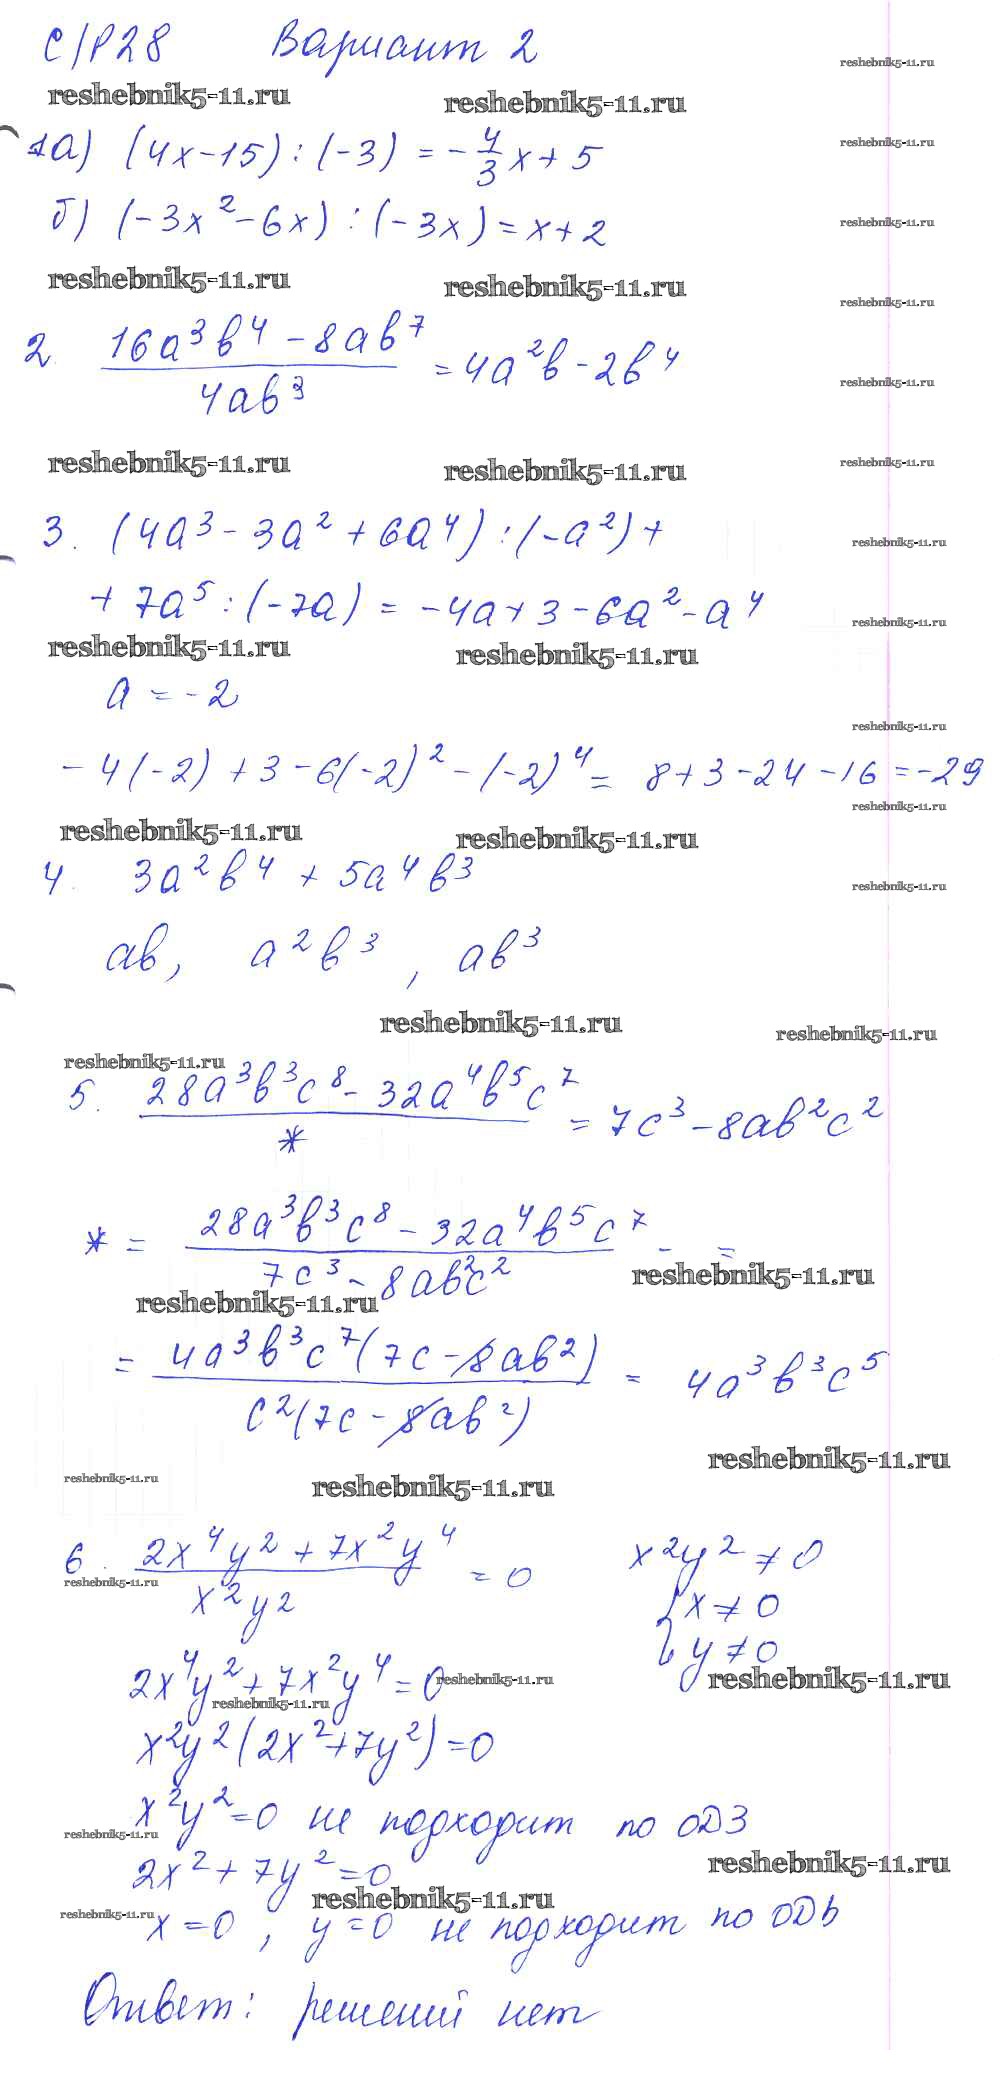 С/Р28 Вариант 2
reshebnik5-11.ru
reshebnik5-11.ru reshebnik5-11.ru
1а) (4x-15):(-3) = -4/3 x+5
reshebnik5-11.ru
б) (-3x²-6x):(-3x)=x+2
reshebnik5-11.ru
reshebnik5-11.ru reshebnik5-11.ru
reshebnik5-11.ru
2. (16a³b⁴-8ab⁷)/(4ab³) = 4a²b-2b⁴
reshebnik5-11.ru
reshebnik5-11.ru reshebnik5-11.ru reshebnik5-11.ru
3. (4a³-3a²+6a⁴):(-a²)+
reshebnik5-11.ru
+7a⁵:(-7a) = -4a+3-6a²-a⁴
reshebnik5-11.ru
reshebnik5-11.ru reshebnik5-11.ru
a = -2
reshebnik5-11.ru
-4(-2)+3-6(-2)²-(-2)⁴= 8+3-24-16=-29
reshebnik5-11.ru
reshebnik5-11.ru reshebnik5-11.ru
4. 3a²b⁴+5a⁴b³
reshebnik5-11.ru
ab, a²b³, ab³
reshebnik5-11.ru reshebnik5-11.ru
reshebnik5-11.ru
5. (28a³b³c⁸-32a⁴b⁵c⁷)/* = 7c³-8ab²c²
* = (28a³b³c⁸-32a⁴b⁵c⁷)/(7c³-8ab²c²) =
reshebnik5-11.ru
reshebnik5-11.ru
= (4a³b³c⁷(7c-8ab²))/(c²(7c-8ab²)) = 4a³b³c⁵
reshebnik5-11.ru
reshebnik5-11.ru reshebnik5-11.ru
6. (2x⁴y²+7x²y⁴)/(x²y²) = 0 x²y²≠0
reshebnik5-11.ru
{x≠0
y≠0
reshebnik5-11.ru reshebnik5-11.ru
2x⁴y²+7x²y⁴=0
reshebnik5-11.ru
x²y²(2x²+7y²)=0
x²y²=0 не подходит по ОДЗ
reshebnik5-11.ru
reshebnik5-11.ru
2x²+7y²=0
reshebnik5-11.ru
reshebnik5-11.ru
x=0, y=0 не подходит по ОДЗ
Ответ: решений нет